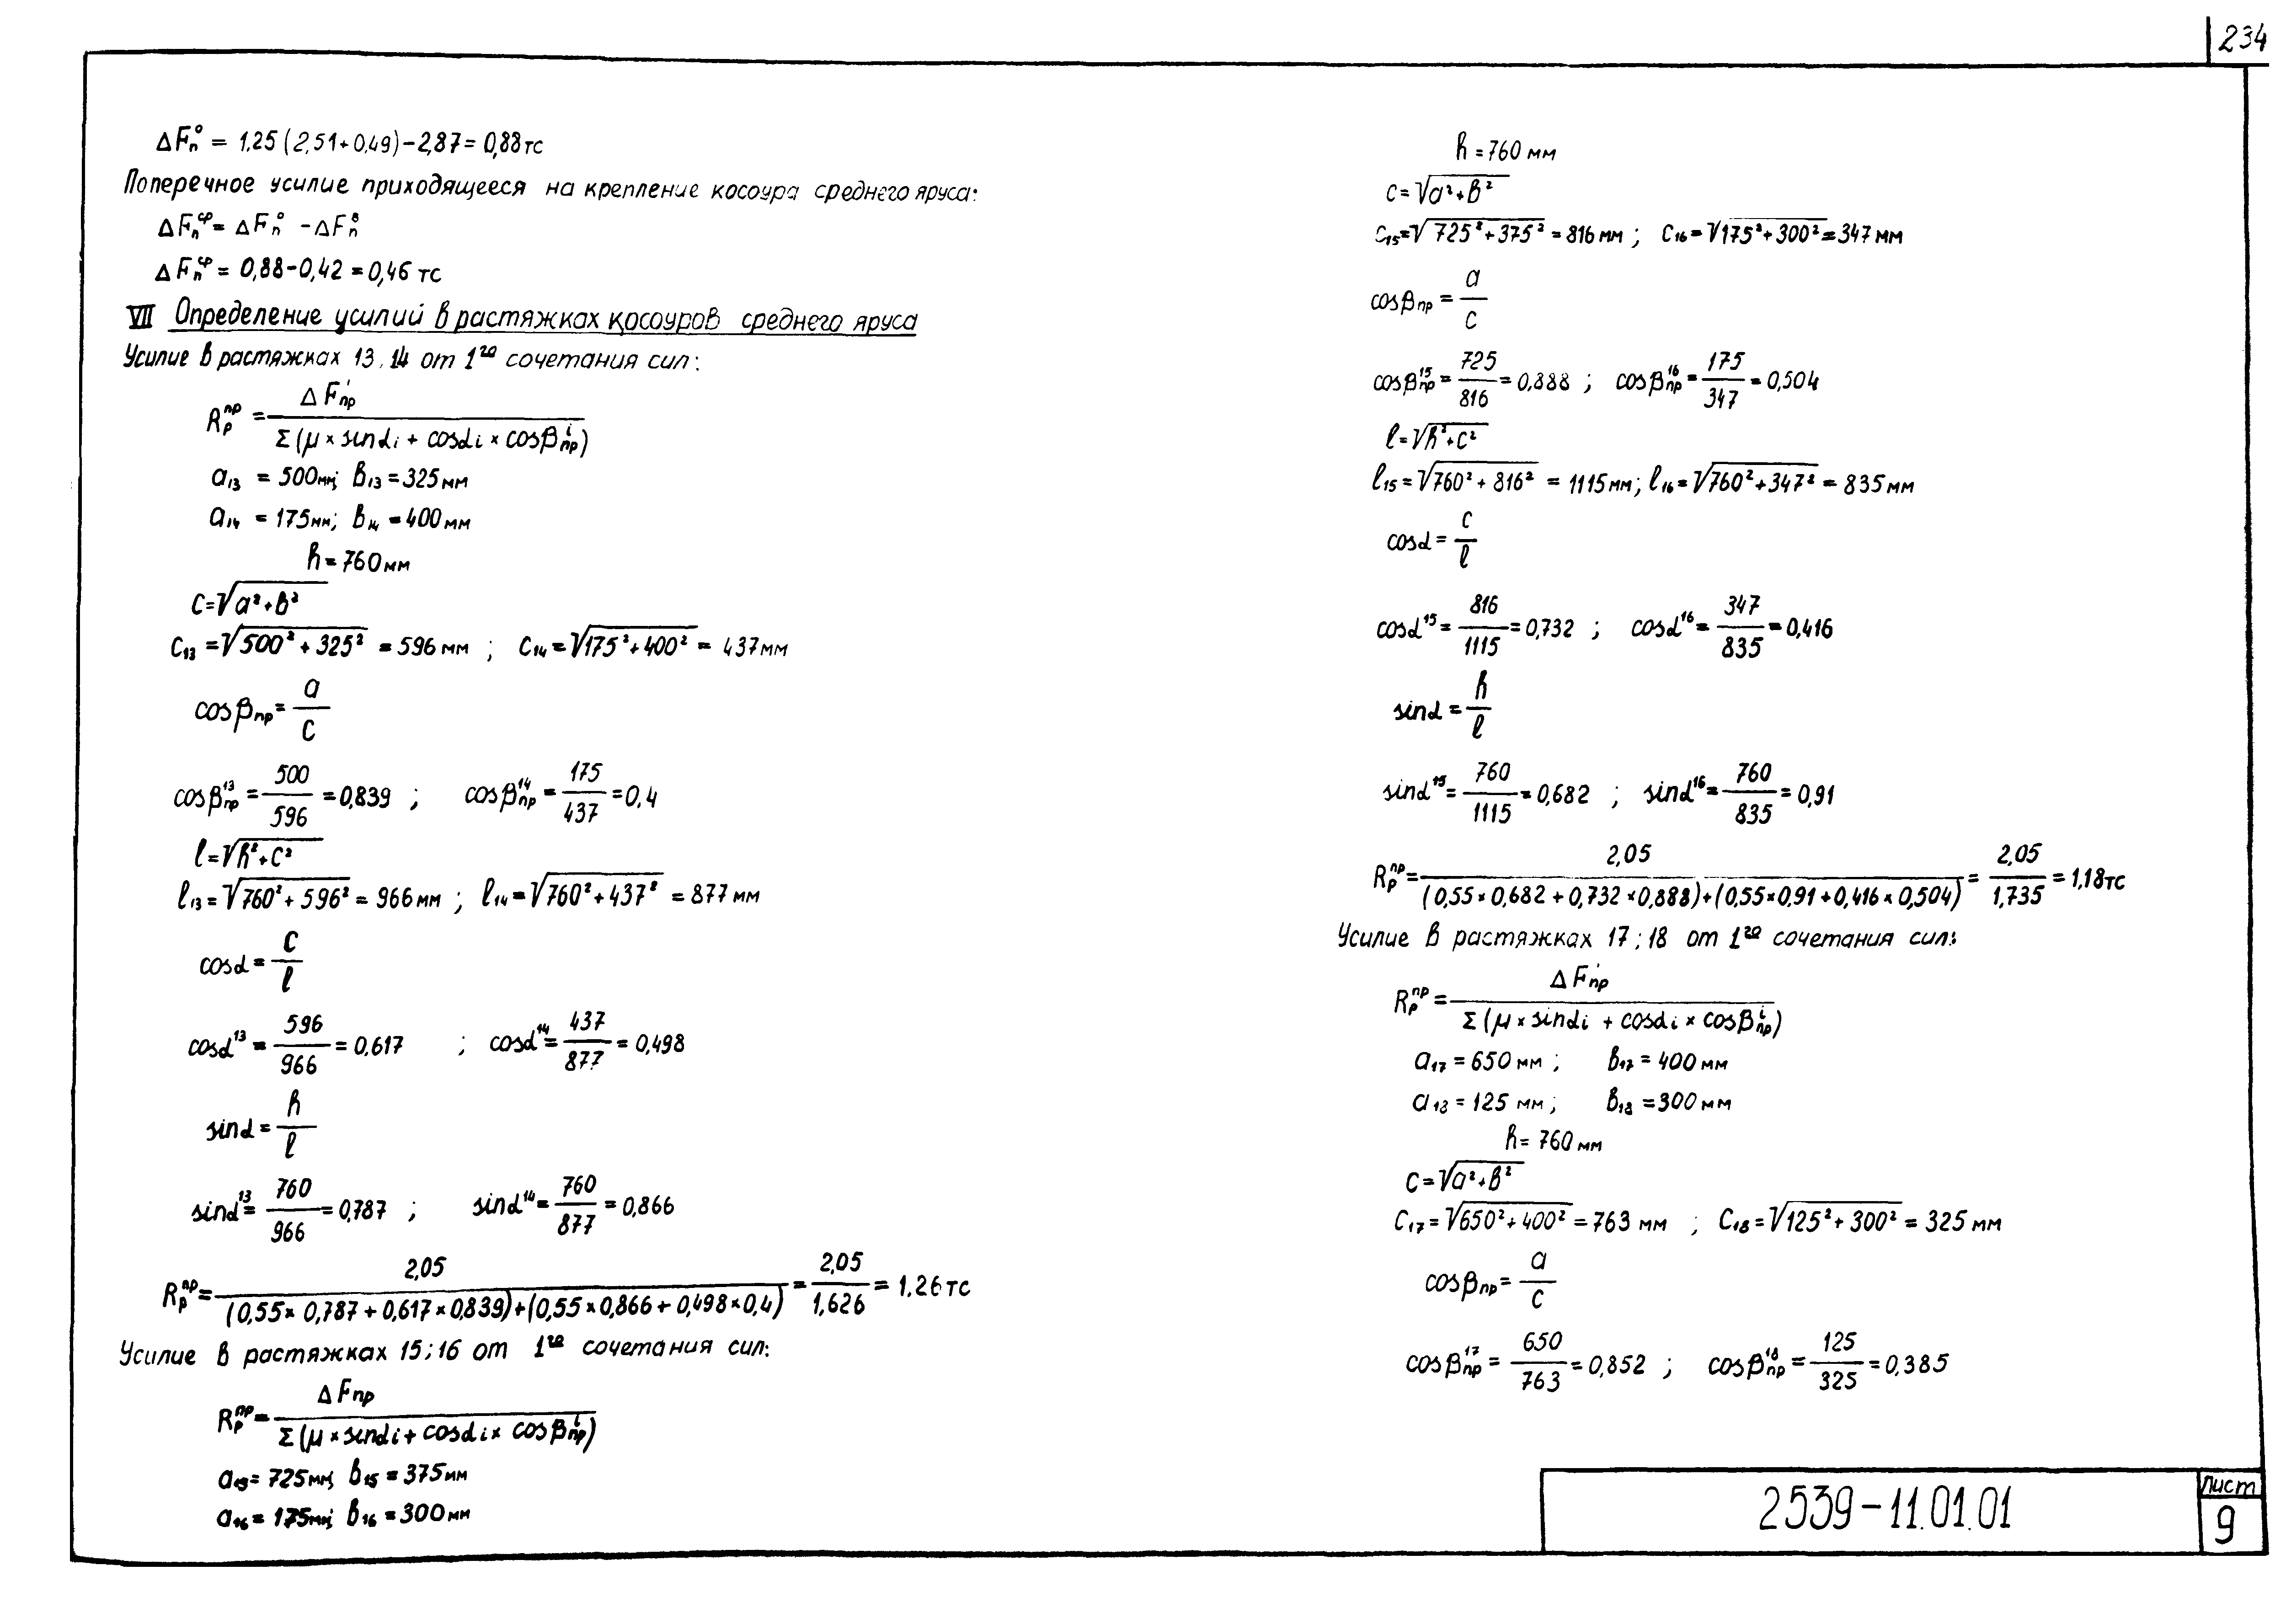 234
ΔFп⁰ = 1,25 (2,51+0,49) − 2,87 = 0,88 тс
Поперечное усилие приходящееся на крепление косоура среднего яруса:
ΔFп^ср = ΔFп⁰ − ΔFп^в
ΔFп^ср = 0,88 − 0,42 = 0,46 тс
VII Определение усилий в растяжках косоуров среднего яруса
Усилие в растяжках 13, 14 от 1го сочетания сил:
Rр^пр = ΔFпр / Σ(μ × sinαi + cosαi × cosβпр^i)
a13 = 500мм; в13 = 325мм
a14 = 175мм; в14 = 400мм
h = 760мм
c = √(a²+в²)
C13 = √(500² + 325²) = 596 мм ; C14 = √(175² + 400²) = 437мм
cosβпр = a / c
cosβпр^13 = 500 / 596 = 0,839 ; cosβпр^14 = 175 / 437 = 0,4
ℓ = √(h²+c²)
ℓ13 = √(760² + 596²) = 966 мм ; ℓ14 = √(760² + 437²) = 877 мм
cosα = c / ℓ
cosα^13 = 596 / 966 = 0,617 ; cosα^14 = 437 / 877 = 0,498
sinα = h / ℓ
sinα^13 = 760 / 966 = 0,787 ; sinα^14 = 760 / 877 = 0,866
Rр^пр = 2,05 / (0,55 × 0,787 + 0,617 × 0,839) + (0,55 × 0,866 + 0,498 × 0,4) = 2,05 / 1,626 = 1,26 тс
Усилие в растяжках 15; 16 от 1го сочетания сил:
Rр^пр = ΔFпр / Σ(μ × sinαi + cosαi × cosβпр^i)
a15 = 725мм; в15 = 375мм
a16 = 175мм; в16 = 300мм
h = 760 мм
c = √(a²+в²)
C15 = √(725² + 375²) = 816 мм ; C16 = √(175² + 300²) = 347 мм
cosβпр = a / c
cosβпр^15 = 725 / 816 = 0,888 ; cosβпр^16 = 175 / 347 = 0,504
ℓ = √(h²+c²)
ℓ15 = √(760² + 816²) = 1115мм; ℓ16 = √(760² + 347²) = 835мм
cosα = c / ℓ
cosα^15 = 816 / 1115 = 0,732 ; cosα^16 = 347 / 835 = 0,416
sinα = h / ℓ
sinα^15 = 760 / 1115 = 0,682 ; sinα^16 = 760 / 835 = 0,91
Rр^пр = 2,05 / (0,55 × 0,682 + 0,732 × 0,888) + (0,55 × 0,91 + 0,416 × 0,504) = 2,05 / 1,735 = 1,18тс
Усилие в растяжках 17; 18 от 1го сочетания сил:
Rр^пр = ΔFпр / Σ(μ × sinαi + cosαi × cosβпр^i)
a17 = 650 мм ; в17 = 400 мм
a18 = 125 мм ; в18 = 300 мм
h = 760 мм
c = √(a²+в²)
C17 = √(650² + 400²) = 763 мм ; C18 = √(125² + 300²) = 325 мм
cosβпр = a / c
cosβпр^17 = 650 / 763 = 0,852 ; cosβпр^18 = 125 / 325 = 0,385
2539-11.01.01
Лист
9